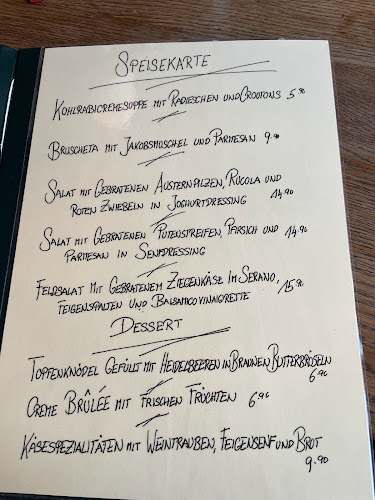 SPEISEKARTE
KOHLRABICREMESUPPE MIT RADIESCHEN UND CROUTONS 5.90
BRUSCHETA MIT JAKOBSMUSCHEL UND PARMESAN 9.90
SALAT MIT GEBRATENEN AUSTERNPILZEN, RUCOLA UND
ROTEN ZWIEBELN IN JOGHURTDRESSING 14.90
SALAT MIT GEBRATENEN PUTENSTREIFEN, PFIRSICH UND 14.90
PARMESAN IN SENFDRESSING
FELDSALAT MIT GEBRATENEM ZIEGENKÄSE IM SERANO, 15.90
FEIGENSPALTEN UND BALSAMICOVINAIGRETTE
DESSERT
TOPFENKNÖDEL GEFÜLLT MIT HEIDELBEEREN IN BRAUNEN BUTTERBRÖSELN
6.90
CREME BRÛLÉE MIT FRISCHEN FRÜCHTEN 6.90
KÄSESPEZIALITÄTEN MIT WEINTRAUBEN, FEIGENSENF UND BROT
9.90